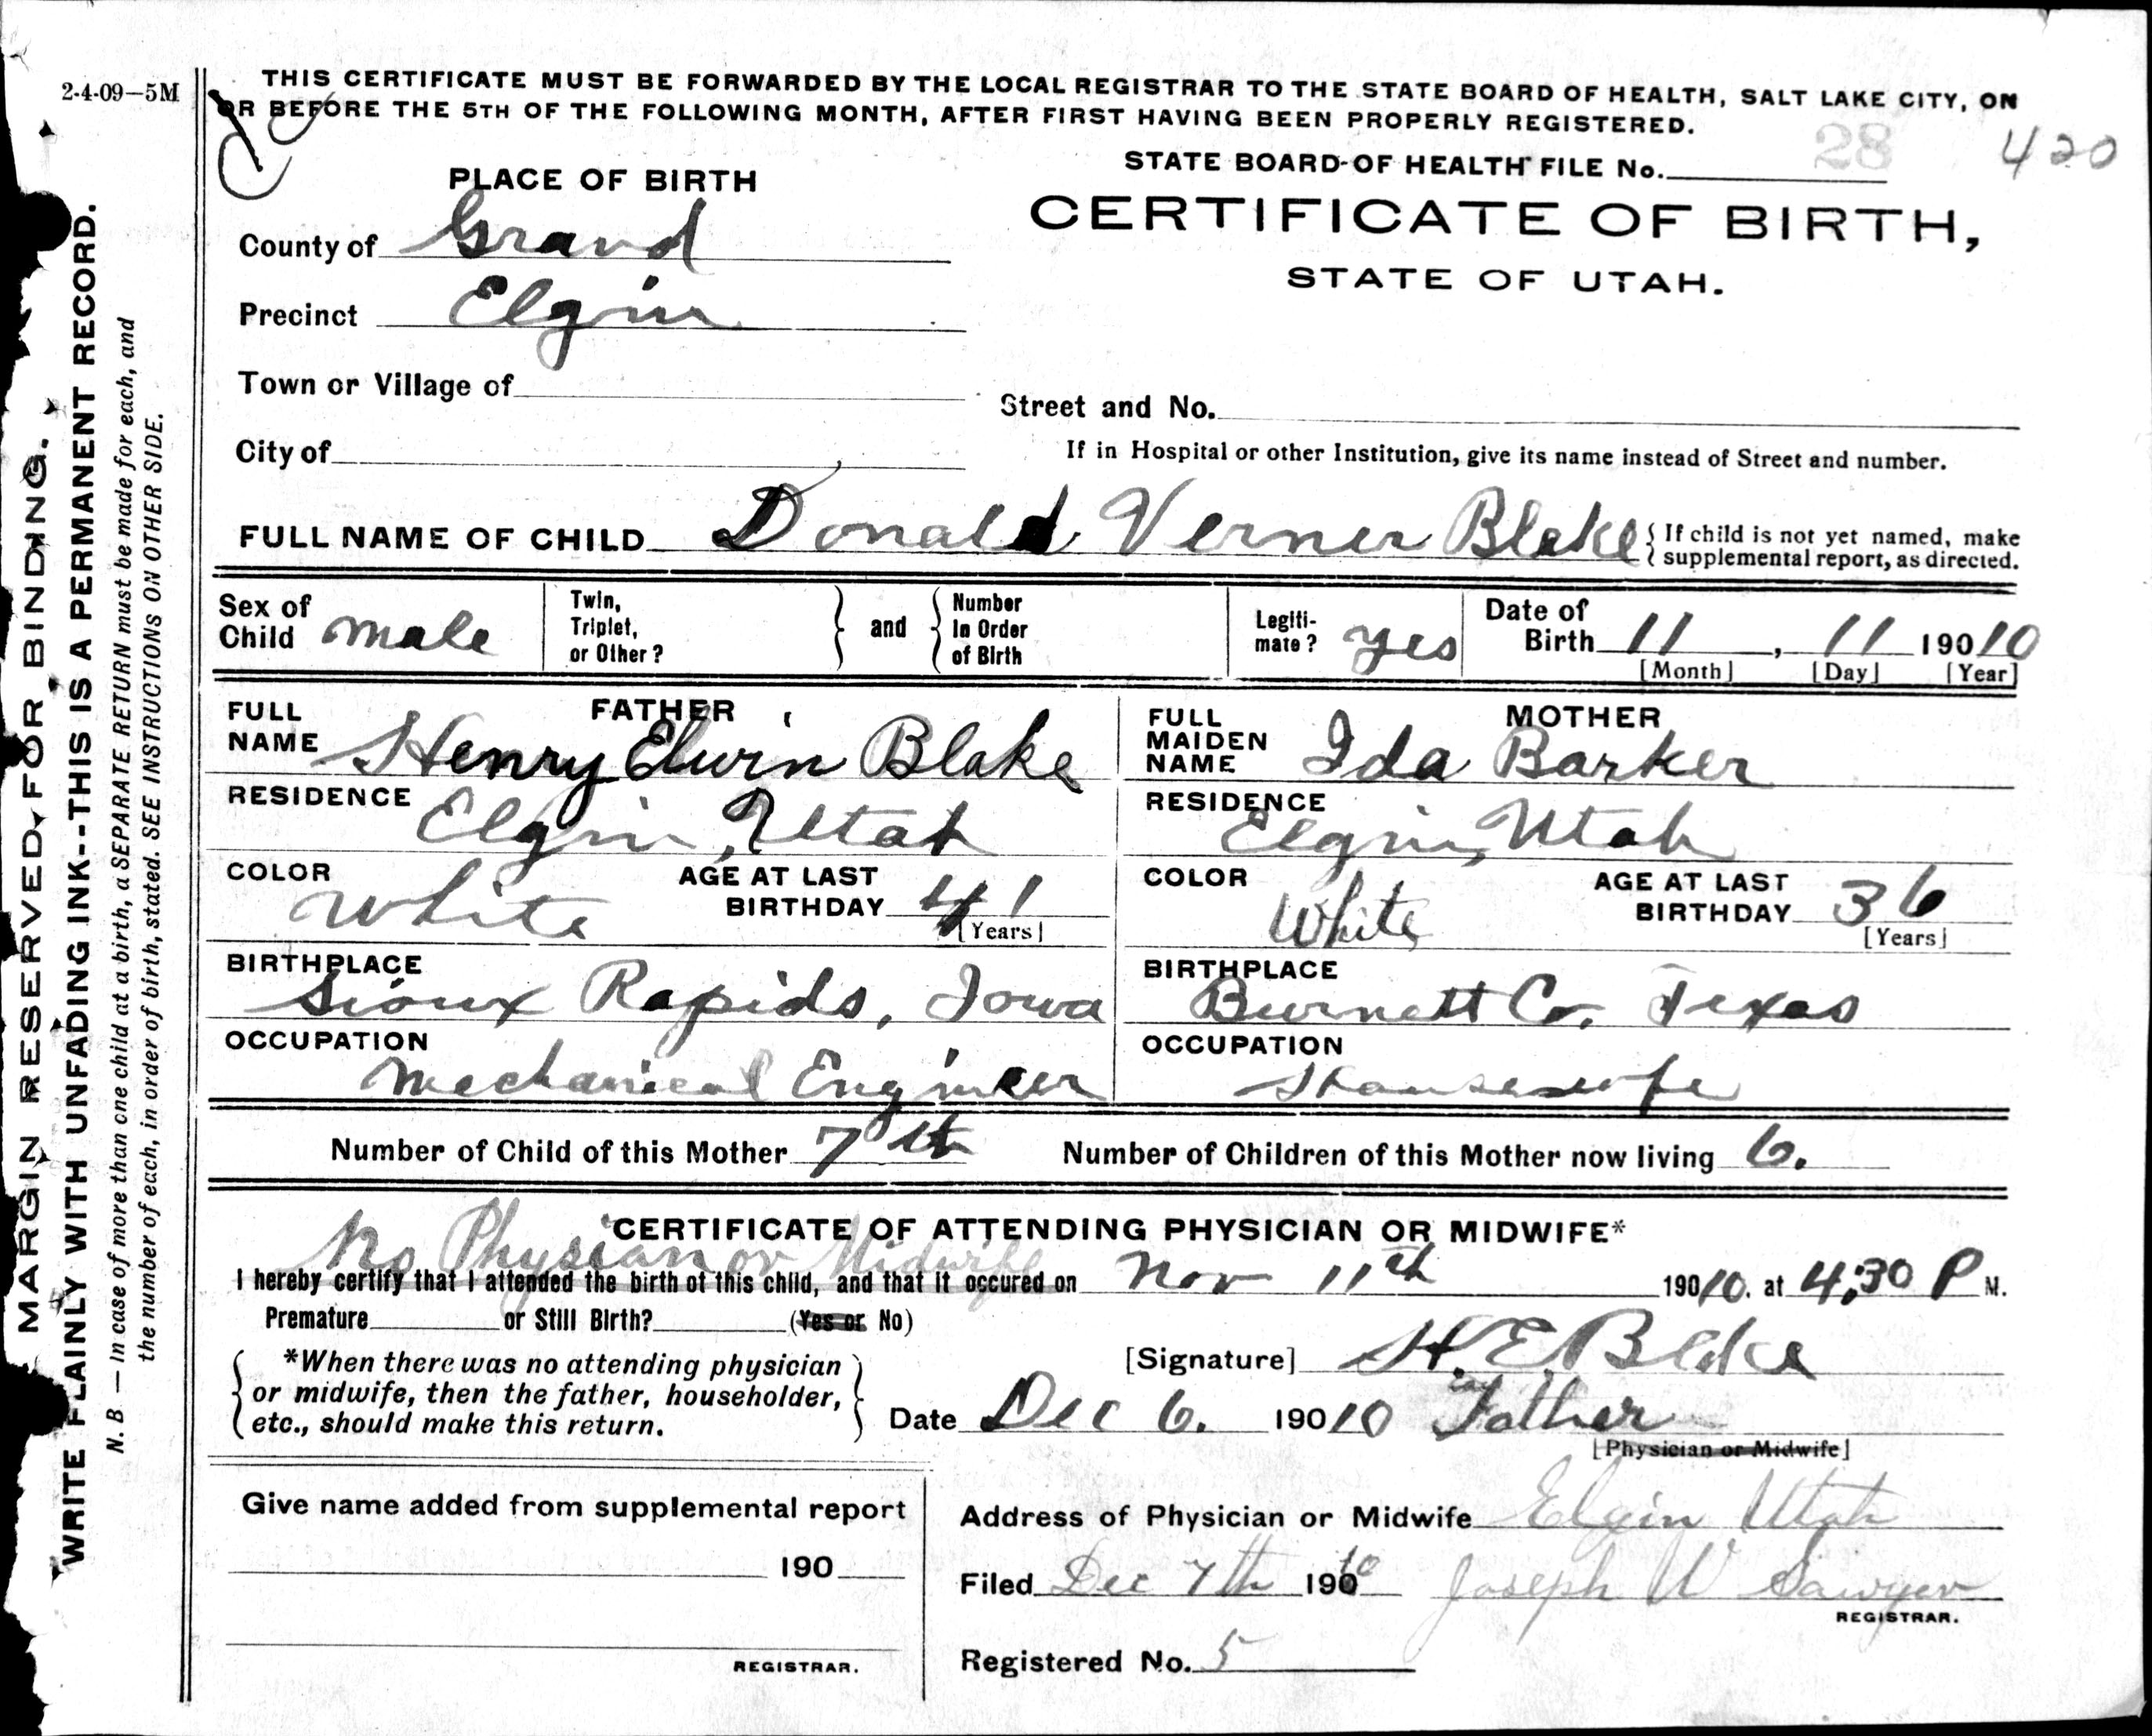 2-4-09—5M
THIS CERTIFICATE MUST BE FORWARDED BY THE LOCAL REGISTRAR TO THE STATE BOARD OF HEALTH, SALT LAKE CITY, ON
OR BEFORE THE 5TH OF THE FOLLOWING MONTH, AFTER FIRST HAVING BEEN PROPERLY REGISTERED.
STATE BOARD OF HEALTH FILE No. 28 420
PLACE OF BIRTH
CERTIFICATE OF BIRTH,
STATE OF UTAH.
County of Grand
Precinct Elgin
Town or Village of
Street and No.
City of
If in Hospital or other Institution, give its name instead of Street and number.
FULL NAME OF CHILD Donald Verner Blake { If child is not yet named, make
supplemental report, as directed.
Sex of
Child male
Twin,
Triplet,
or Other?
and
Number
In Order
of Birth
Legiti-
mate? yes
Date of
Birth 11, 11 19010
[Month] [Day] [Year]
FATHER
FULL
NAME Henry Elwin Blake
RESIDENCE
Elgin, Utah
COLOR
White
AGE AT LAST
BIRTHDAY 41
[Years]
BIRTHPLACE
Sioux Rapids, Iowa
OCCUPATION
Mechanical Engineer
MOTHER
FULL
MAIDEN
NAME Ida Barker
RESIDENCE
Elgin, Utah
COLOR
White
AGE AT LAST
BIRTHDAY 36
[Years]
BIRTHPLACE
Burnett Co. Texas
OCCUPATION
Housewife
Number of Child of this Mother 7th Number of Children of this Mother now living 6.
CERTIFICATE OF ATTENDING PHYSICIAN OR MIDWIFE*
No Physian or Midwife
I hereby certify that I attended the birth of this child, and that it occured on Nov 11th 19010. at 4:30 P M.
Premature or Still Birth? (Yes or No)
[Signature] H. E. Blake
*When there was no attending physician
or midwife, then the father, householder,
etc., should make this return.
Date Dec 6. 19010 Father
[Physician or Midwife]
Give name added from supplemental report
190
REGISTRAR.
Address of Physician or Midwife Elgin Utah
Filed Dec 7th 19010 Joseph W Sawyer
REGISTRAR.
Registered No. 5
MARGIN RESERVED FOR BINDING.
WRITE PLAINLY WITH UNFADING INK--THIS IS A PERMANENT RECORD.
N. B — In case of more than one child at a birth, a SEPARATE RETURN must be made for each, and
the number of each, in order of birth, stated. SEE INSTRUCTIONS ON OTHER SIDE.